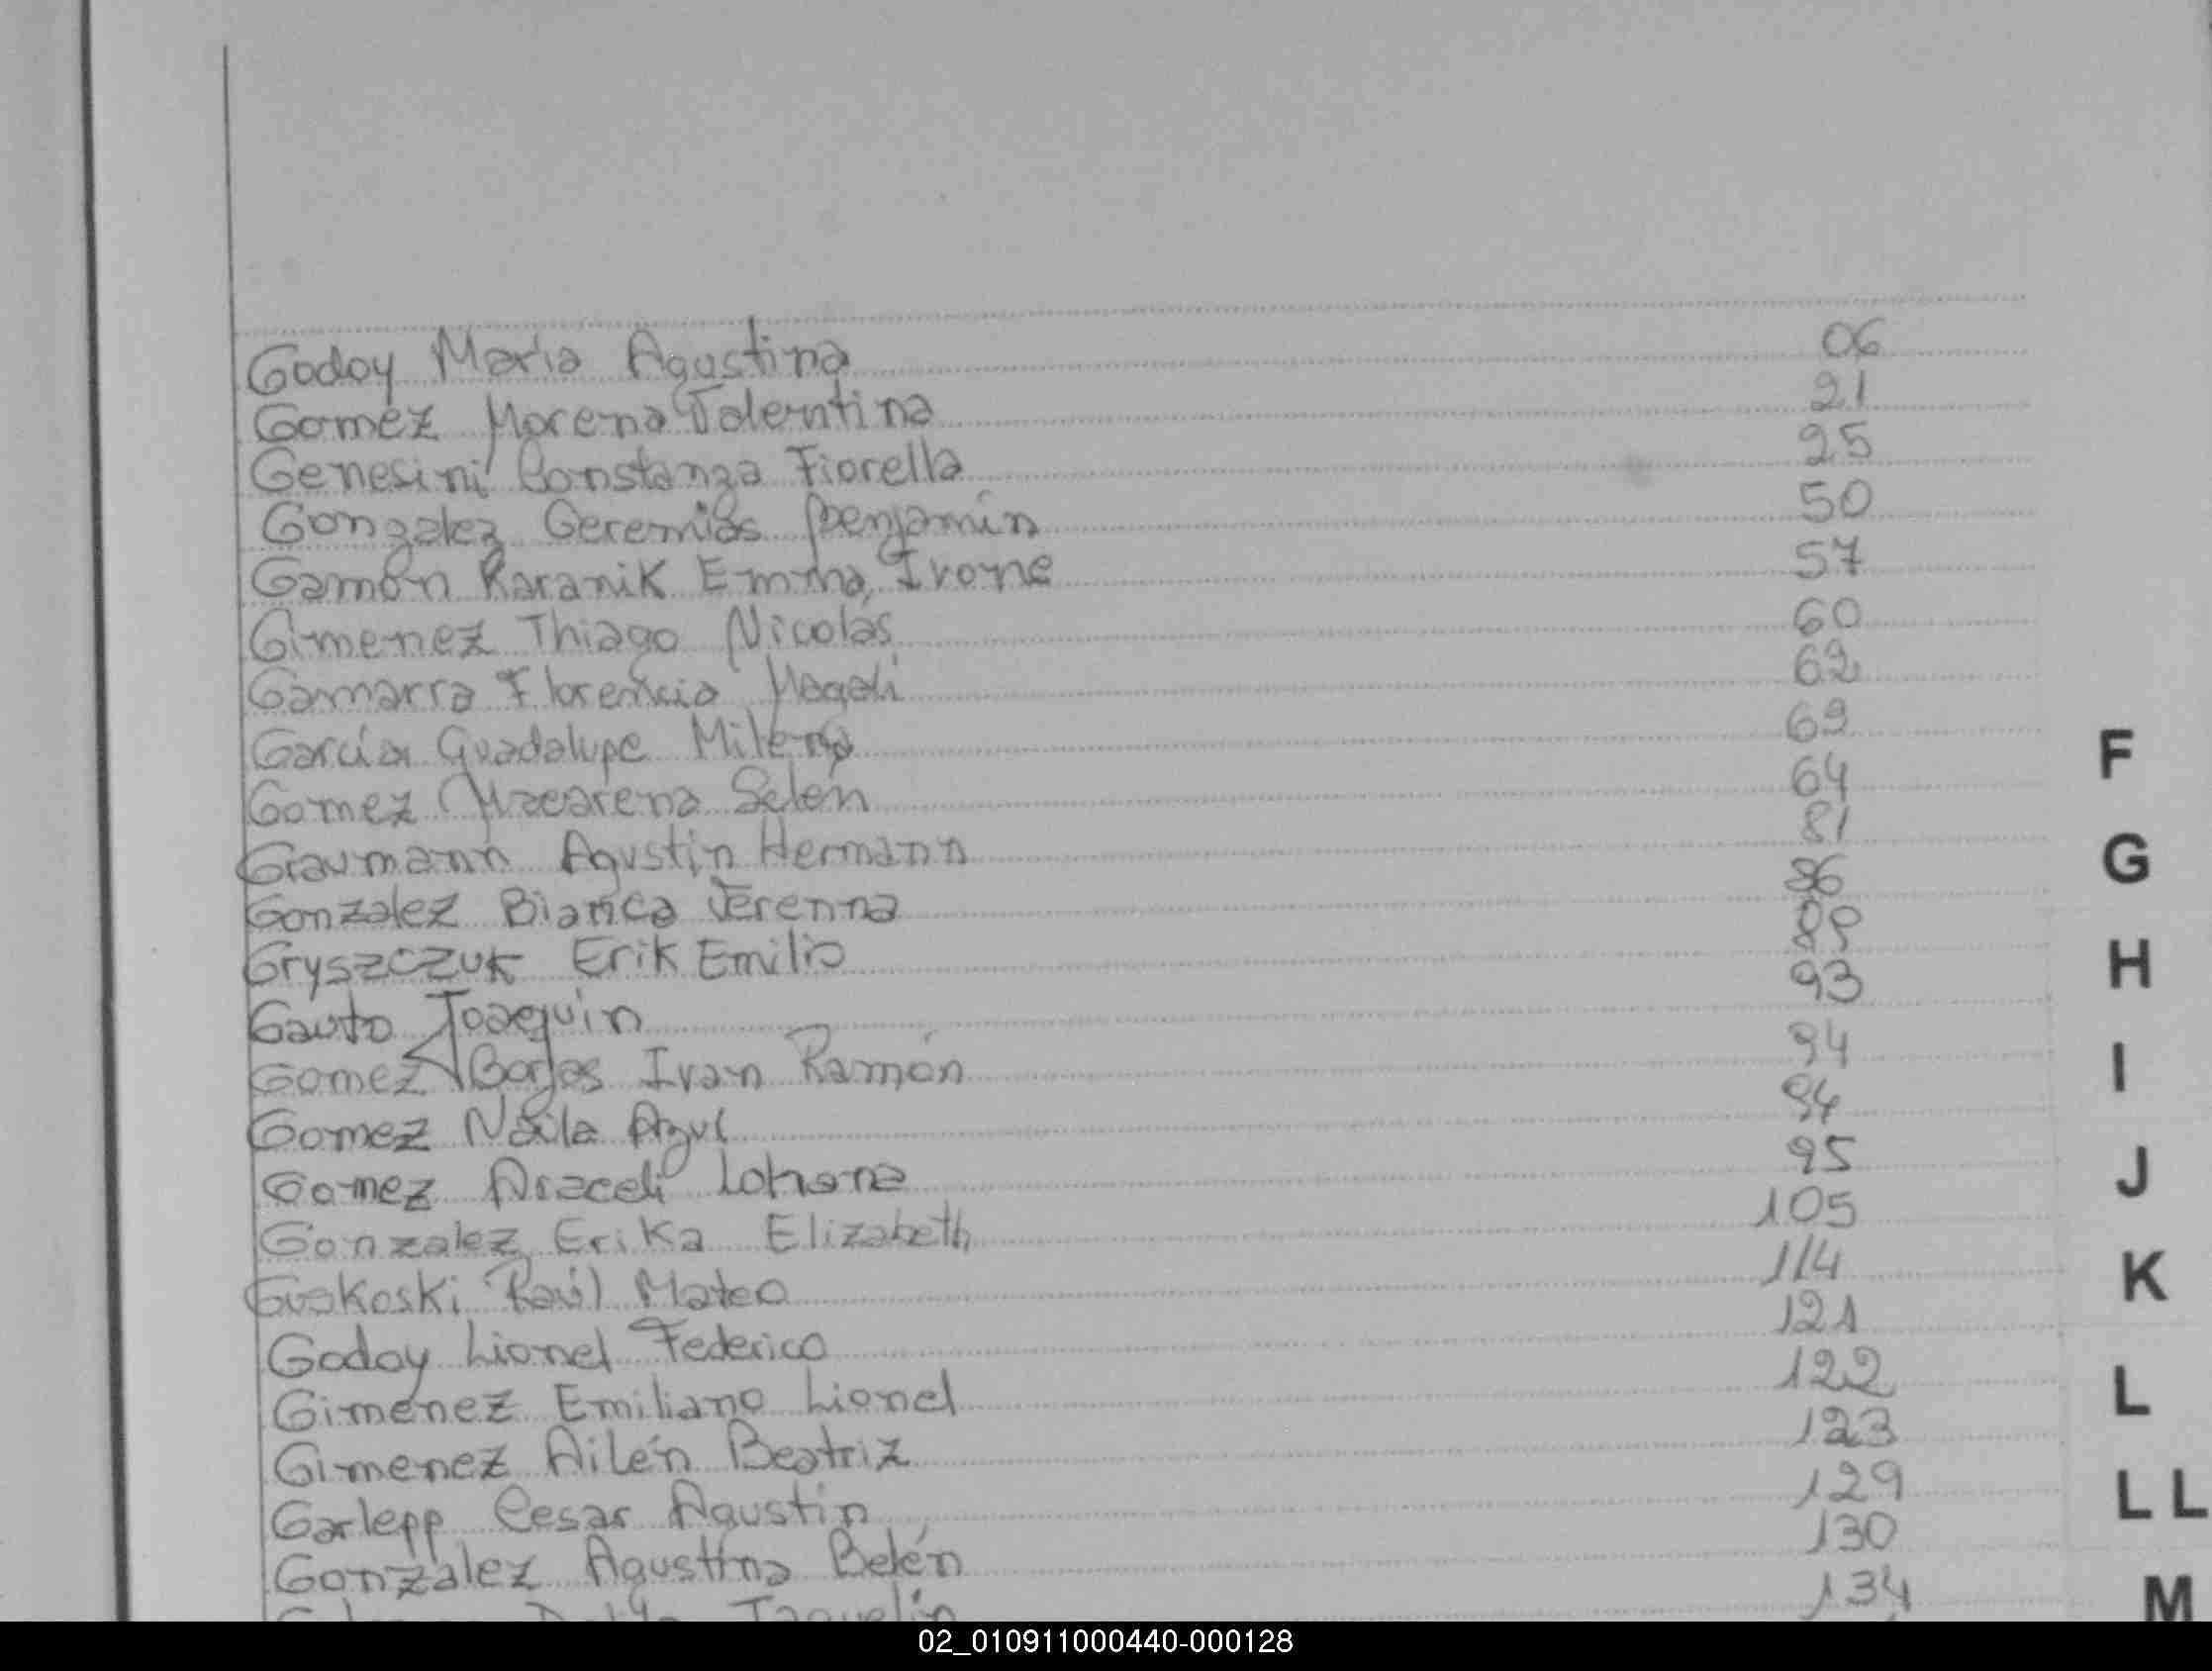 Godoy Maria Agustina 06
Gomez Morena Valentina 21
Genesini Constanza Fiorella 25
Gonzalez Geremias Benjamín 50
Gamón Karanik Emma Ivone 57
Gimenez Thiago Nicolás 60
Gamarra Florencia Magali 62
García Guadalupe Milena 63
Gomez Macarena Selén 64
Graumann Agustin Hermann 81
Gonzalez Bianca Verenna 86
Gryszczuk Erik Emilio 89
Gauto Joaquin 93
Gomez Borjas Ivan Ramón 94
Gomez Naila Azul 94
Gomez Araceli Lohana 95
Gonzalez Erika Elizabeth 105
Guskoski Raúl Mateo 114
Godoy Lionel Federico 121
Gimenez Emiliano Lionel 122
Gimenez Ailén Beatriz 123
Garlepp Cesar Agustin 129
Gonzalez Agustina Belén 130
Jaquelin 134
F
G
H
I
J
K
L
LL
M
02_010911000440-000128